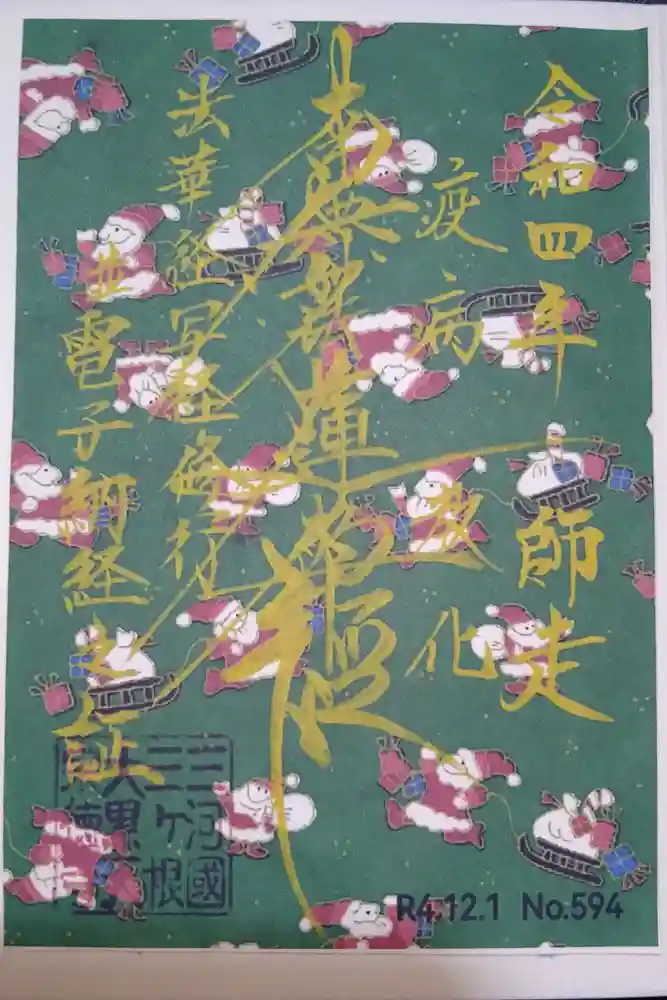 令和四年 師走
疫病 教化
南無妙法蓮華経
法華経写経修行
並電子納経之証
三河國
三ヶ根
大黒天
R4.12.1 No.594